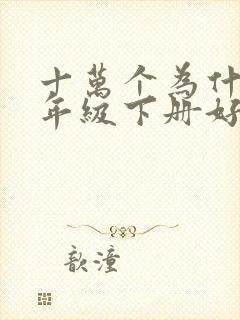 十萬个為什
年級下册好
歆潼